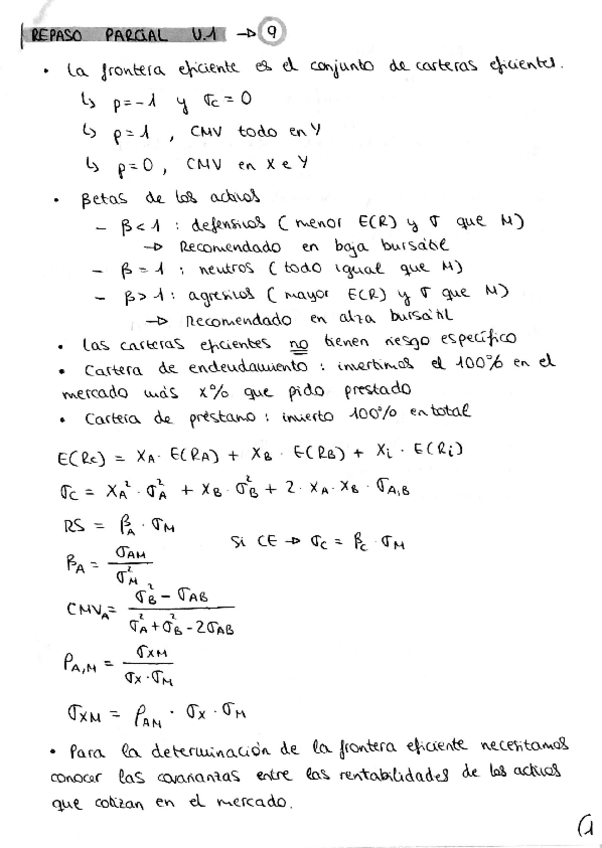 REPASO PARCIAL U.1 → 9
• La frontera eficiente es el conjunto de carteras eficientes.
↳ ρ=-1 y σc = 0
↳ ρ=1 , CMV todo en Y
↳ ρ=0 , CMV en X e Y
• Betas de los activos
- β<1 : defensivos (menor E(R) y σ que M)
→ Recomendado en baja bursátil
- β = 1 : neutros (todo igual que M)
- β>1 : agresivos (mayor E(R) y σ que M)
→ Recomendado en alza bursátil
• Las carteras eficientes no tienen riesgo específico
• Cartera de endeudamiento : invertimos el 100% en el
mercado más x% que pido prestado
• Cartera de préstamo : invierto 100% en total
E(Rc) = XA · E(RA) + XB · E(RB) + Xi · E(Ri)
σc = XA² · σA² + XB · σB² + 2 · XA · XB · σA,B
RS = βA · σM
Si CE → σc = βc · σM
βA = σAM / σM²
CMVA = (σB² - σAB) / (σA² + σB² - 2σAB)
ρA,M = σXM / (σX · σM)
σXM = ρAM · σX · σM
• Para la determinación de la frontera eficiente necesitamos
conocer las covarianzas entre las rentabilidades de los activos
que cotizan en el mercado.
(1